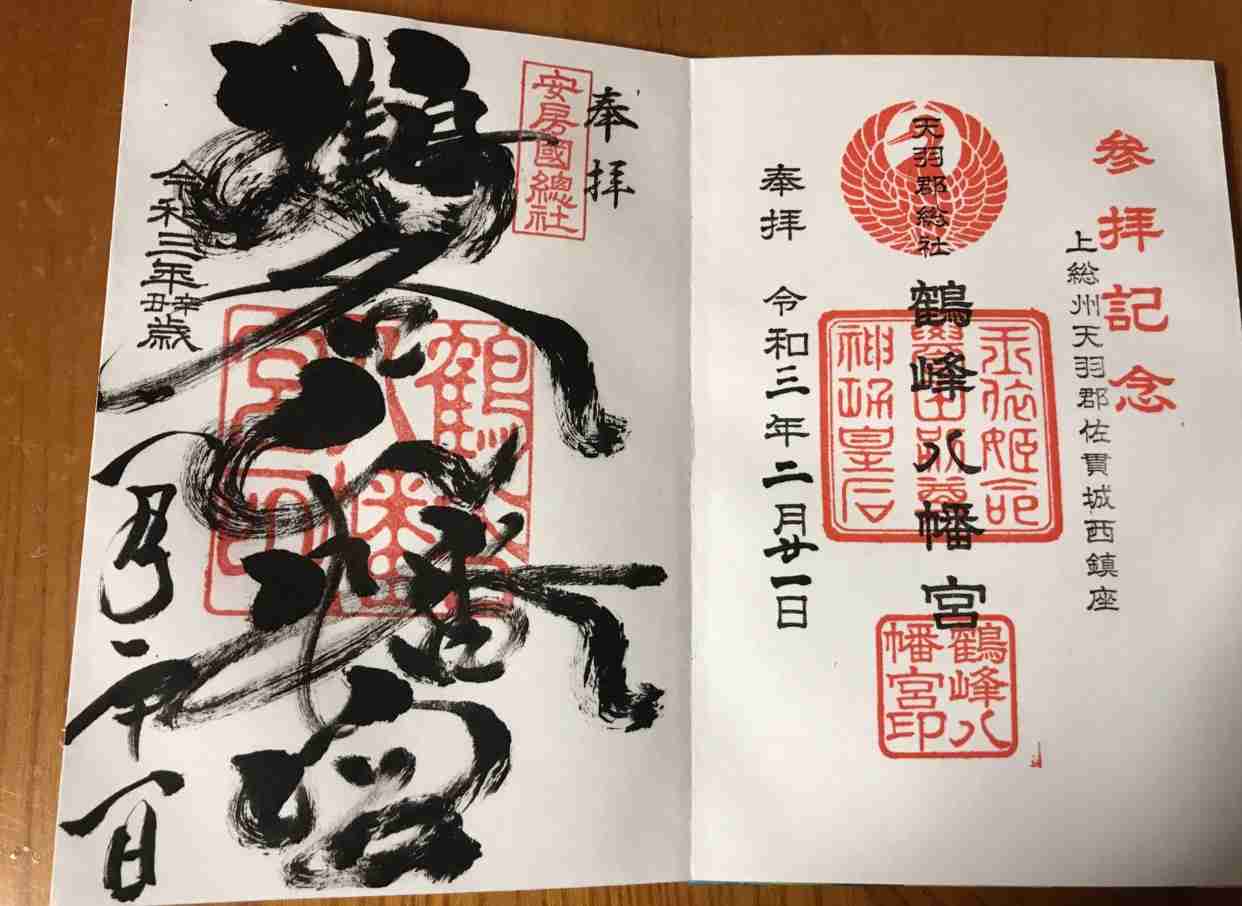 参拝記念
上総州天羽郡佐貫城西鎮座
天羽郡総社
鶴峰八幡宮
玉依姫命
譽田別尊
神功皇后
鶴峰八
幡宮印
奉拝 令和三年二月廿一日
奉拝
安房國總社
鶴谷八幡宮
鶴谷
八幡
宮印
令和三年辛丑歳
二十一日